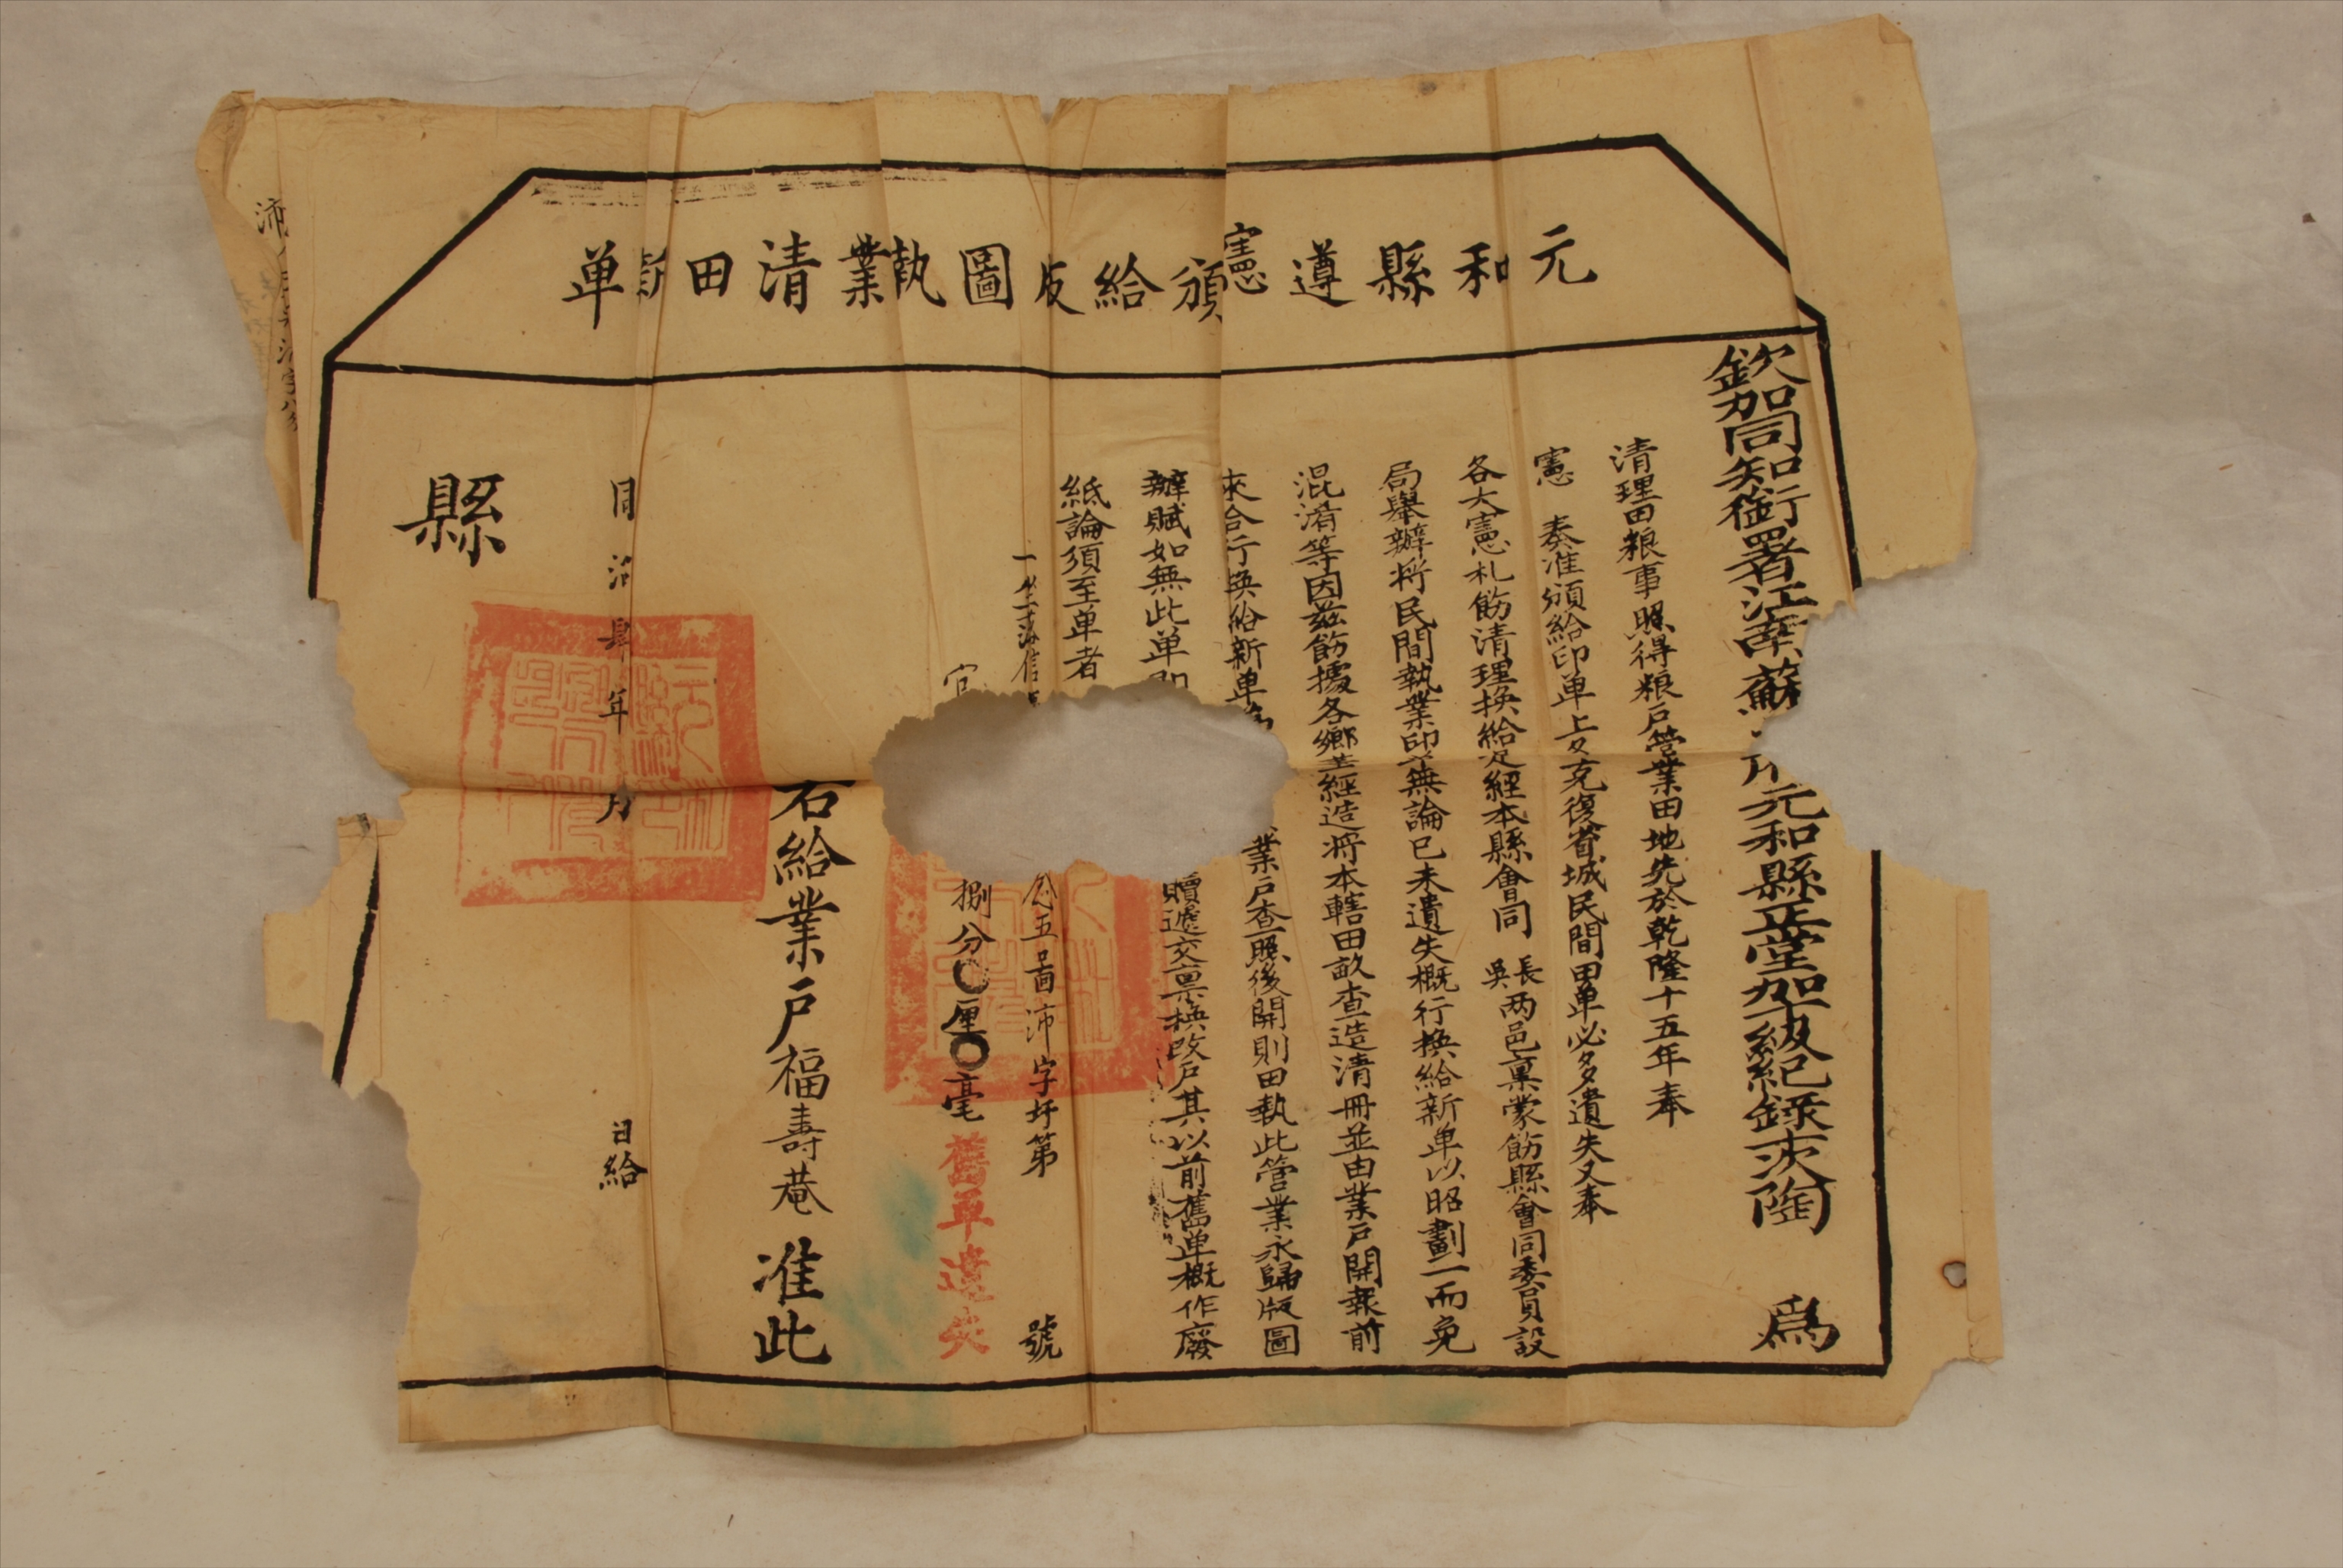 元和縣遵憲頒給版圖執業清田新單
欽加同知銜署江南蘇州府元和縣正堂加十級紀錄十次陶 為
清理田粮事照得粮戶營業田地先於乾隆十五年奉
憲 奏准頒給印單上年克復省城民間田單必多遺失又奉
各大憲札飭清理換給定經本縣會同長吳两邑稟蒙飭縣會同委員設
局舉辦將民間執業印單無論已未遺失概行換給新單以昭劃一而免
混淆等因茲飭據各鄉圩經造將本轄田畝查造清冊並由業戶開報前
來合行換給新單為 業戶查照後開則田執此管業永歸版圖
辦賦如無此單即 贖遞交票換改戶其以前舊單概作廢
紙論須至單者
一坐 念五啚沛字圩第 號
官 捌分〇厘〇毫 舊單遺失
右給業戶福壽菴 准此
同治肆年 月 日給
縣
沛